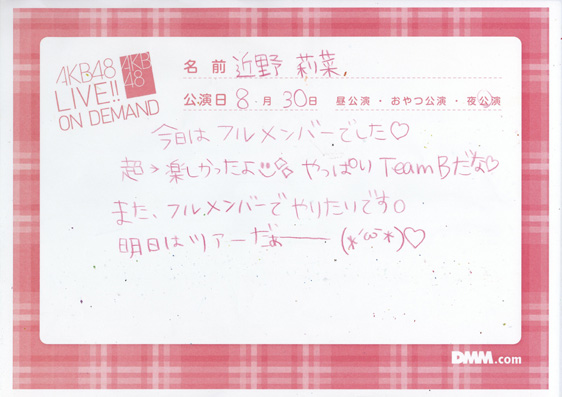 AKB48
LIVE!!
ON DEMAND
AKB
48
名前 近野 莉菜
公演日 8月30日 昼公演・おやつ公演・夜公演
今日はフルメンバーでした♡
超>楽しかったよ やっぱり TeamBだな♡
また、フルメンバーでやりたいです。
明日はツアーだぁー (*´ω`*)♡
DMM.com